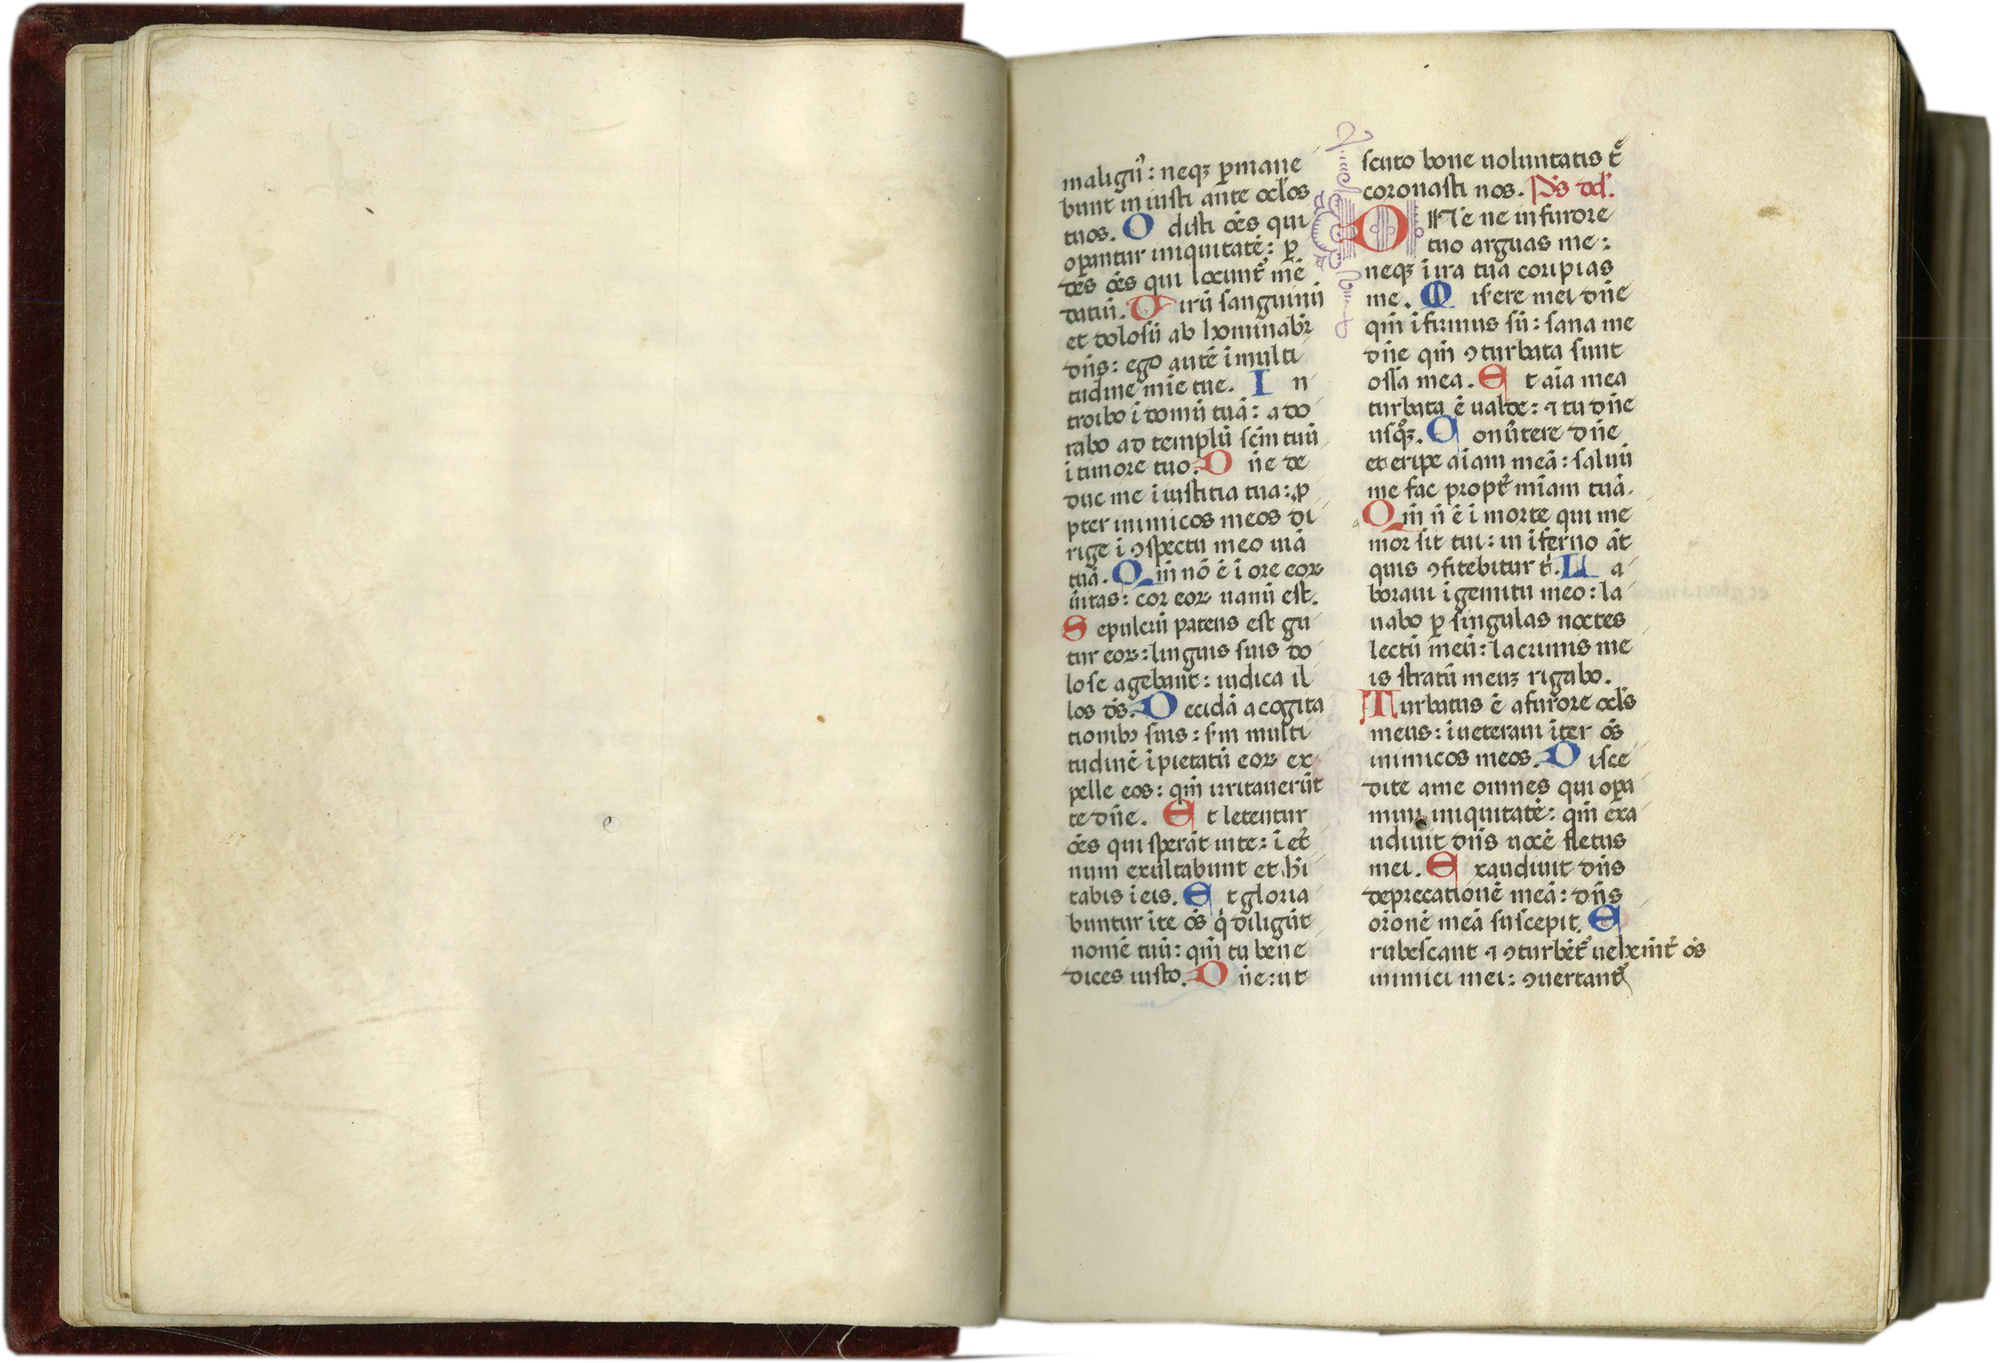 maligꝰ: neqȝ ꝑmane
bunt iniusti ante ocl̓os
tuos. O disti oēs qui
oꝑantur iniquitatē: ꝑ
dēs oēs qui locunt᷑ mē
datiū. Uirū sanguinū
et dolosū ab hominabr̄
dn̄s: ego autē i multi
tudine mīe tue. I n
troibo ī domū tuā: ado
rabo ad templū scm̄ tuū
ī timore tuo. D n̄e de
duc me ī iustitia tua: ꝓ
pter inimicos meos di
rige ī ꝯspectu meo uiā
tuā. Qm̄ nō ē ī ore eoꝝ
ūitas: cor eoꝝ uanū est.
Sepulcrū patens est gu
tur eoꝝ: linguis suis do
lose agebant: iudica il
los ds̄. Decidā a cogita
tionibȝ suis: sm̄ multi
tudinē īpietatū eoꝝ ex
pelle eos: qm̄ irritauerūt
te dn̄e. Et letentur
oēs qui sperāt inte: ī et̓
num exultabunt et hī
tabis ī eis. Et gloria
buntur īte oēs q̓ diligūt
nomē tuū: qm̄ tu bene
dices iusto. D n̄e: ut
scuto bone uoluntatis t̄
coronasti nos. Ps̄ dd̓.
DNe ne in furore
tuo arguas me:
neqȝ ī ira tua corripias
me. Miserere mei dn̄e
qm̄ īfirmus sū: sana me
dn̄e qm̄ ꝯturbata sunt
ossa mea. Et aīa mea
turbata ē ualde: ⁊ tu dn̄e
usq̓ȝ. Conūtere dn̄e
et eripe aīam meā: saluū
me fac propt̓ mīam tuā.
Qm̄ n̄ ē ī morte qui me
mor sit tui: in īferno āt
quis ꝯfitebitur t̓. L a
boraui ī gemitu meo: la
uabo ꝑ singulas noctes
lectū meū: lacrimis me
is stratū meuȝ rigabo.
Turbatus ē a furore ocl̓s
meus: īueteraui īter oēs
inimicos meos. D isce
dite ame omnes qui oꝑa
mini iniquitatē: qm̄ exa
udiuit dn̄s uocē fletus
mei. Exaudiuit dn̄s
deprecationē meā: dn̄s
orōnē meā suscepit. E
rubescant ⁊ ꝯturbēt᷑ uehemīt̓ oēs
inimici mei: ꝯuertant᷑